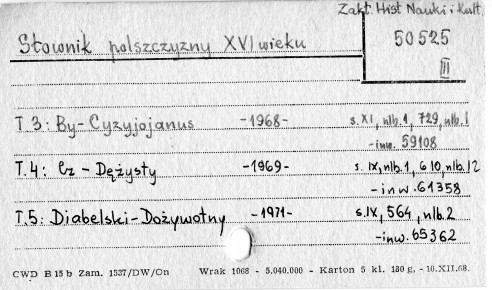 Zakł. Hist Nauki i Kult.
Słownik polszczyzny XVI wieku
50525
II
T.3: By-Cyzyjojanus -1968- s. XI, nlb.1, 729, nlb.1
-inw. 59108
T.4: Cz - Dężysty -1969- s. IX, nlb.1, 610, nlb.12
-inw. 61358
T.5: Diabelski-Dożywotny -1971- s. IX, 564, nlb.2
-inw. 65362
CWD B 15 b Zam. 1537/DW/On Wrak 1068 - 5.040.000 - Karton 5 kl. 180 g. - 10.XII.68.